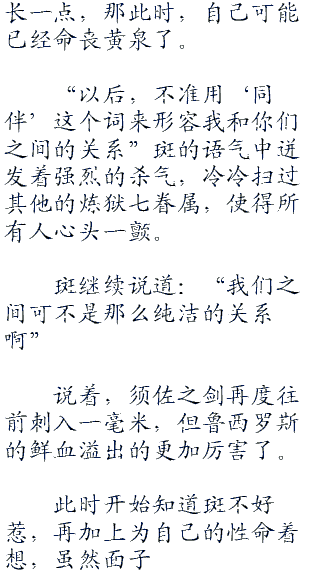 长一点，那此时，自己可能
已经命丧黄泉了。
“以后，不准用‘同
伴’这个词来形容我和你们
之间的关系”斑的语气中迸
发着强烈的杀气，冷冷扫过
其他的炼狱七眷属，使得所
有人心头一颤。
斑继续说道：“我们之
间可不是那么纯洁的关系
啊”
说着，须佐之剑再度往
前刺入一毫米，但鲁西罗斯
的鲜血溢出的更加厉害了。
此时开始知道斑不好
惹，再加上为自己的性命着
想，虽然面子